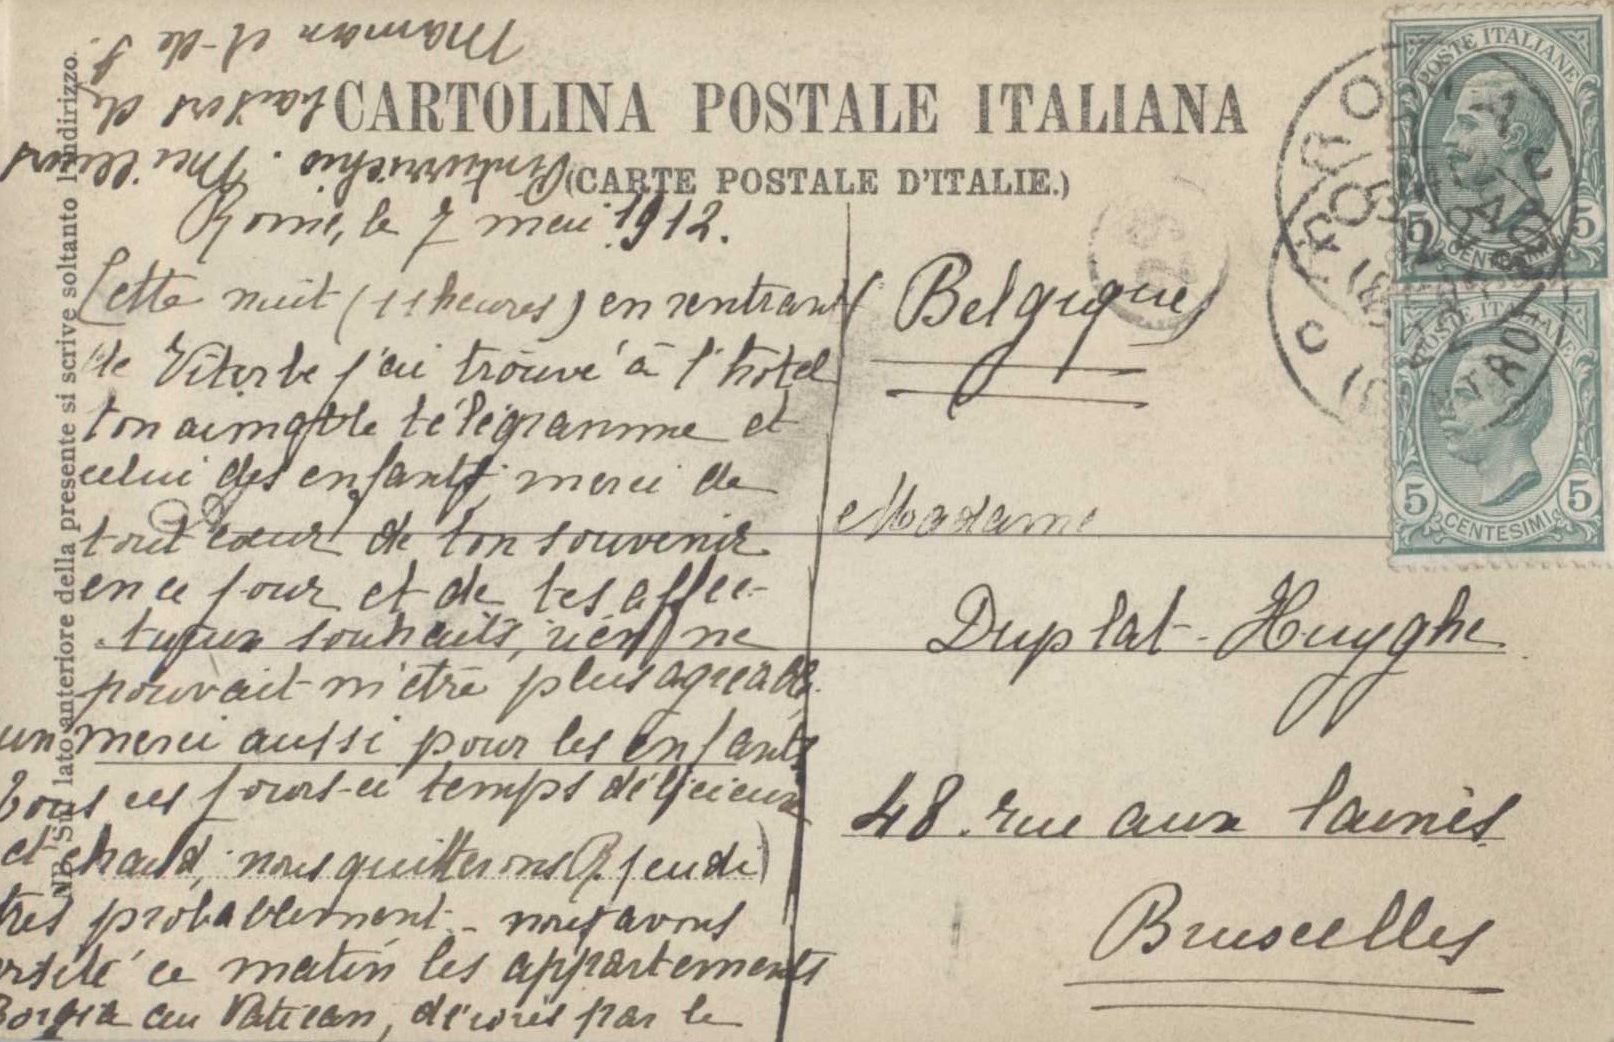 CARTOLINA POSTALE ITALIANA
(CARTE POSTALE D'ITALIE.)
NB. Sul lato anteriore della presente si scrive soltanto l'indirizzo.
Rome, le 7 mai 1912.
Cette nuit (11 heures) en rentrant
de Viterbe j'ai trouvé à l'hôtel
ton aimable télégramme et
celui des enfants, merci de
tout coeur de ton souvenir
en ce jour et de tes affec-
tueux souhaits, rien ne
pouvait m'être plus agréable.
un merci aussi pour les enfants
Tous ces jours-ci temps délicieux
et chaud, nous quitterons R. jeudi
très probablement - nous avons
visité ce matin les appartements
Borgia au Vatican, décorés par le
Pinturrichio. Meilleurs
baisers de
Maman et de J.
Belgique
Madame
Duplat-Huyghe
48. rue aux laines
Bruxelles
POSTE ITALIANE
5 5
CENTESIMI
POSTE ITALIANE
5 5
CENTESIMI